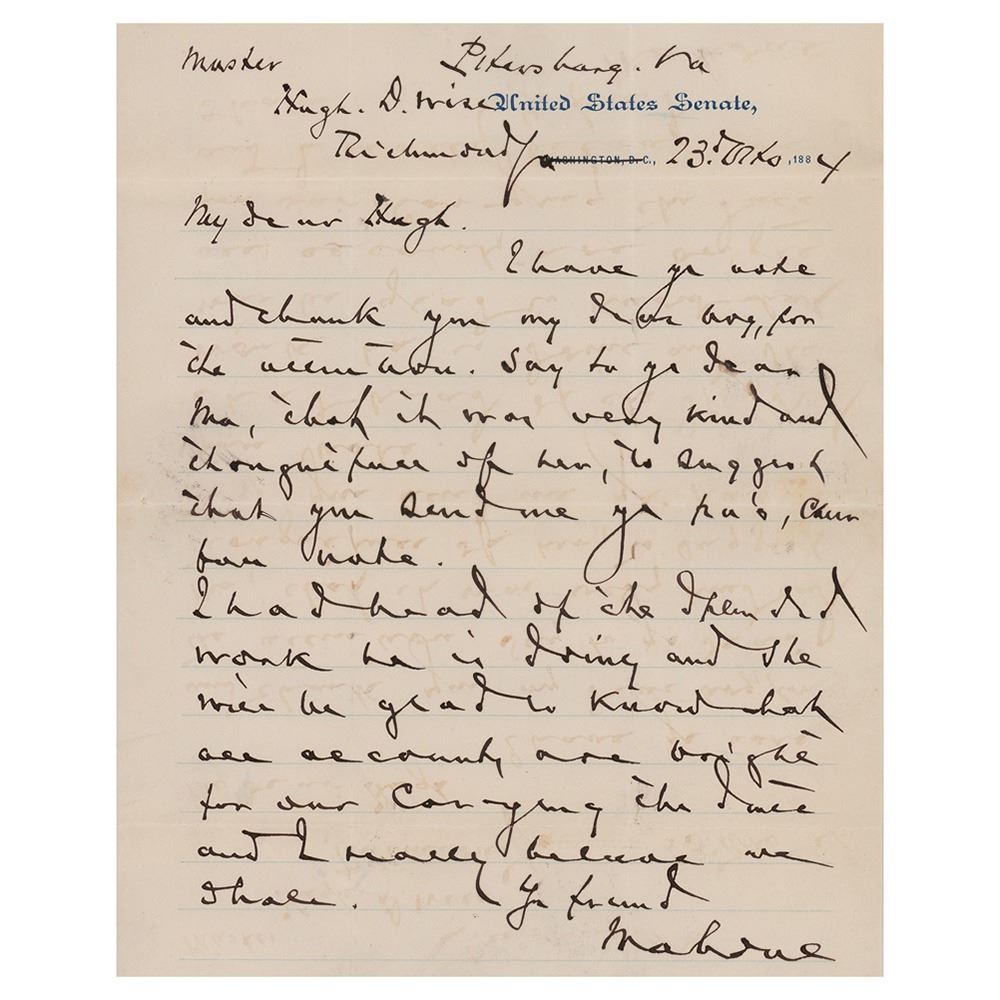 Master Petersburg. Va
Hugh. D. Wise United States Senate,
Richmond Va WASHINGTON, D.C., 23d Octo, 1884
My dear Hugh.
I have yr note
and thank you my dear boy, for
the attention. Say to yr dear
Ma, that it was very kind and
thoughtfull of her, to suggest
that you send me yr pa's, cheer
full note.
I had head of the splendid
work he is doing and she
will be glad to know that
all accounts are bright
for our carrying the state
and I really believe we
shall. Yr friend
Mahone